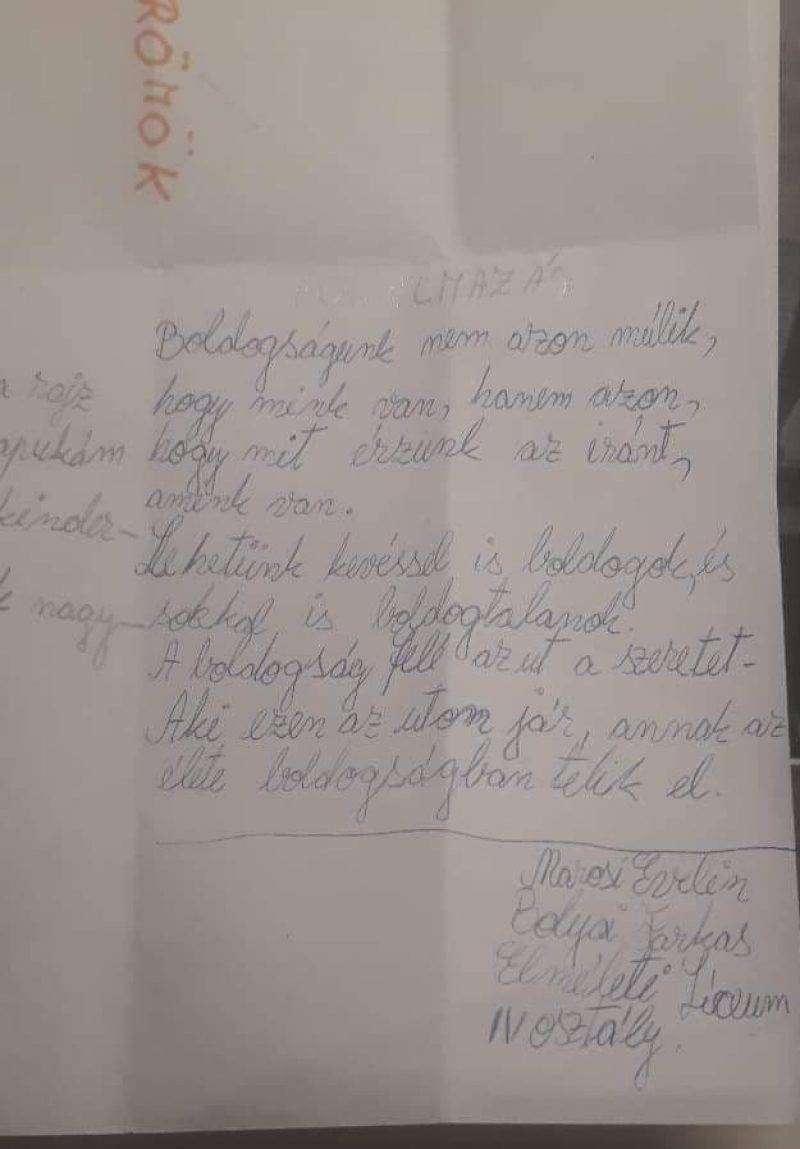 RÖMÖK
LMAZÁS
Boldogságunk nem azon múlik,
hogy mink van, hanem azon,
hogy mit érzünk az iránt,
amink van.
Lehetünk kevéssel is boldogok, és
sokkal is boldogtalanok.
A boldogság felé az ut a szeretet-
Aki ezen az utom jár, annak az
élete boldogságban telik el.
a rajz
apukám
kinder-
k nagy-
Marosi Evelin
Bolyai Farkas
Elméleti Líceum
IV osztály.